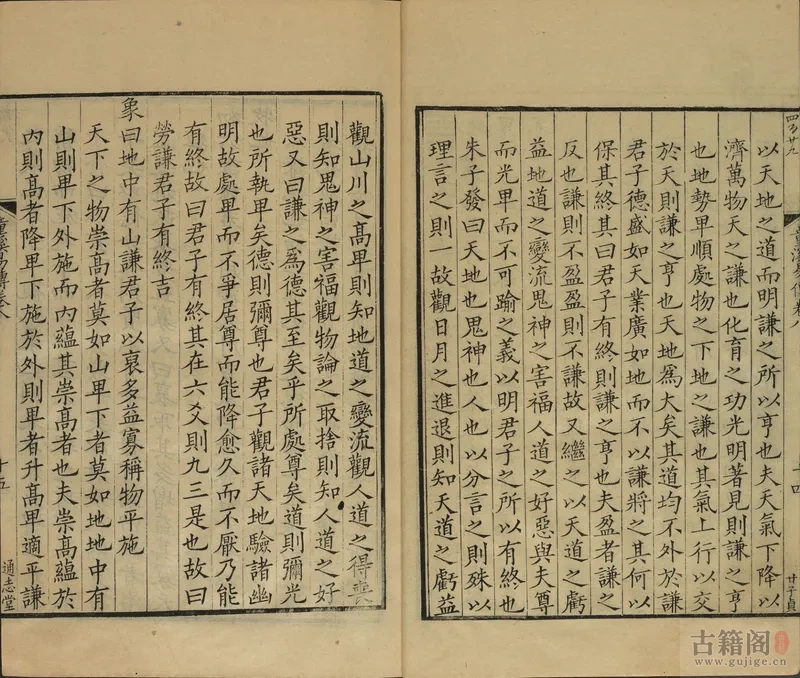 以天地之道而明謙之所以亨也夫天氣下降以
濟萬物天之謙也化育之功光明著見則謙之亨
也地勢卑順處物之下地之謙也其氣上行以交
於天則謙之亨也天地爲大矣其道均不外於謙
君子德盛如天業廣如地而不以謙將之其何以
保其終其曰君子有終則謙之亨也夫盈者謙之
反也謙則不盈盈則不謙故又繼之以天道之虧
益地道之變流鬼神之害福人道之好惡與夫尊
而光卑而不可踰之義以明君子之所以有終也
朱子發曰天地也鬼神也人也以分言之則殊以
理言之則一故觀日月之進退則知天道之虧益
觀山川之高卑則知地道之變流觀人道之得喪
則知鬼神之害福觀物論之取捨則知人道之好
惡又曰謙之爲德其至矣乎所處尊矣道則彌光
也所執卑矣德則彌尊也君子觀諸天地驗諸幽
明故處卑而不爭居尊而能降愈久而不厭乃能
有終故曰君子有終其在六爻則九三是也故曰
勞謙君子有終吉
象曰地中有山謙君子以裒多益寡稱物平施
天下之物崇高者莫如山卑下者莫如地地中有
山則卑下外施而內蘊其崇高者也夫崇高蘊於
內則高者降卑下施於外則卑者升高卑適平謙
童溪易傳卷八
十五
通志堂
古籍阁
www.gujige.cn